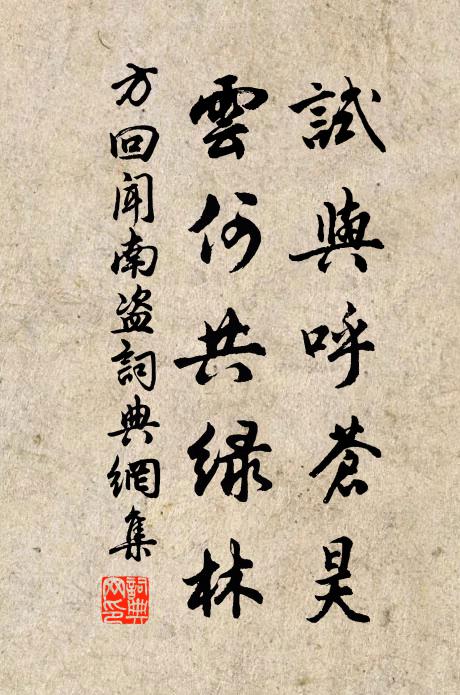 試與呼蒼昊
雲何共緑林
方回闻南盗詞典網集
詞典网印